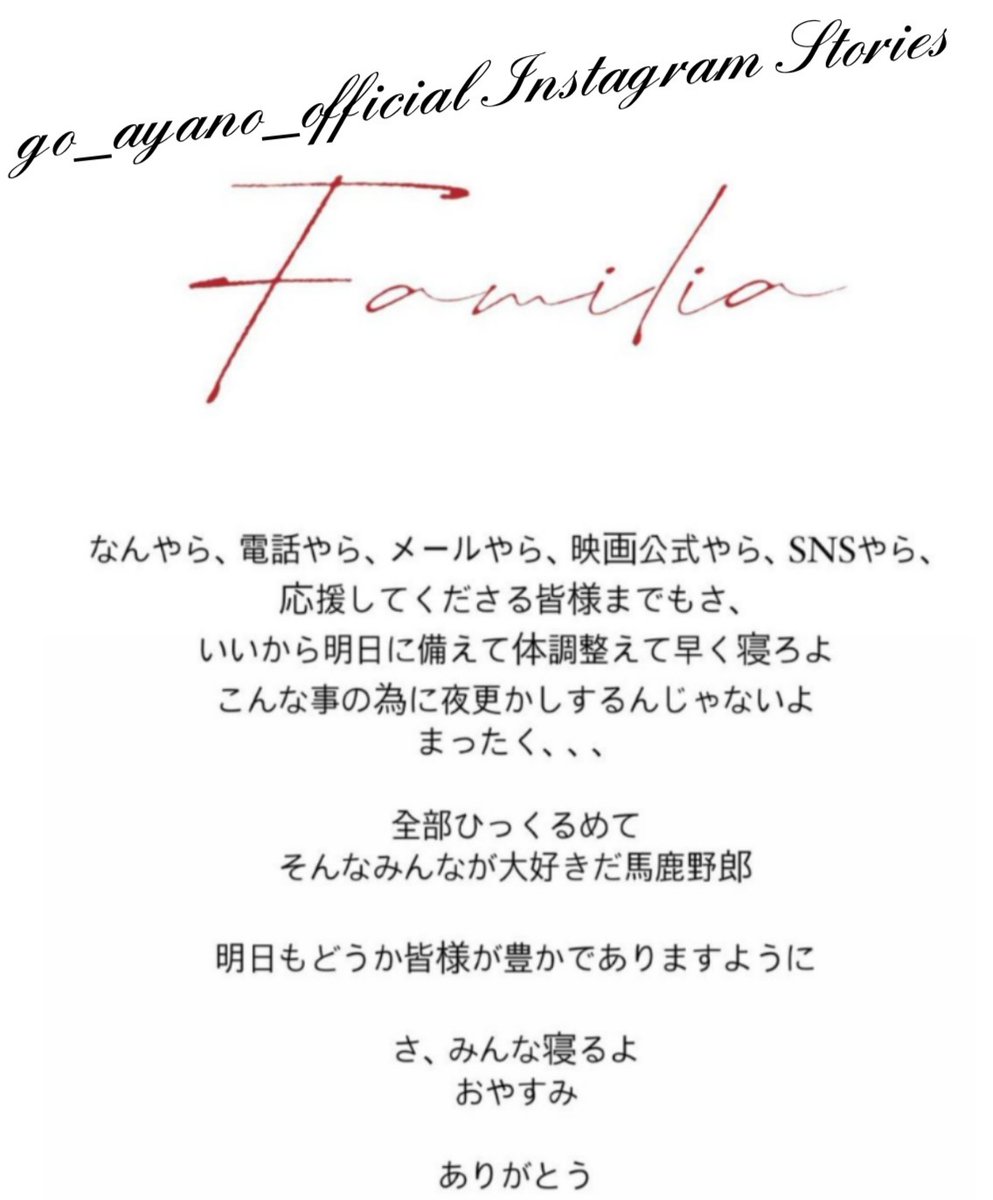 go_ayano_official Instagram Stories
Familia
なんやら、電話やら、メールやら、映画公式やら、SNSやら、
応援してくださる皆様までもさ、
いいから明日に備えて体調整えて早く寝ろよ
こんな事の為に夜更かしするんじゃないよ
まったく、、、
全部ひっくるめて
そんなみんなが大好きだ馬鹿野郎
明日もどうか皆様が豊かでありますように
さ、みんな寝るよ
おやすみ
ありがとう